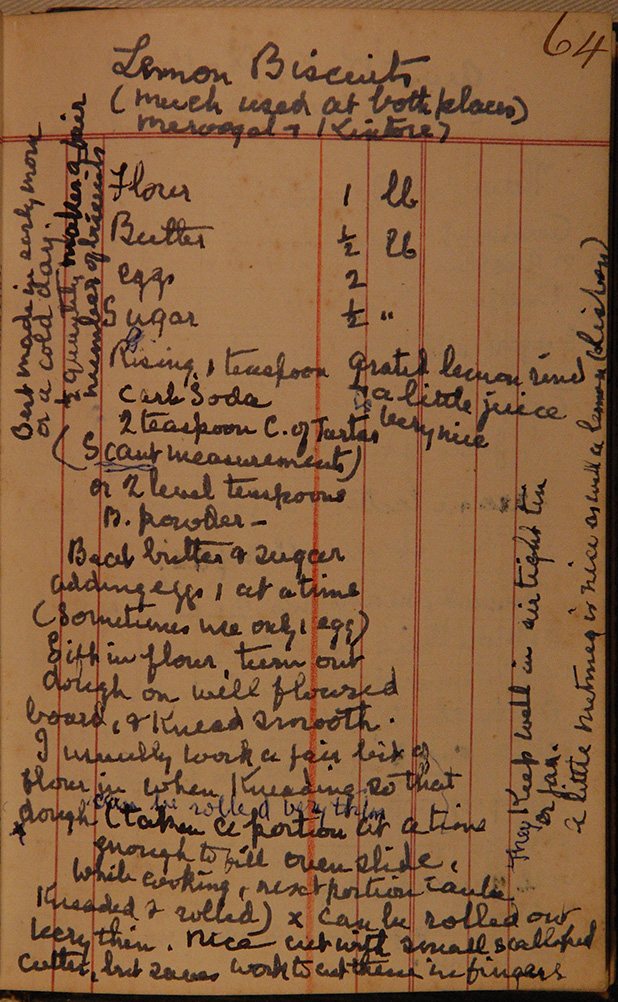 64
Lemon Biscuits
(Much used at both places)
Meroogal & Kintore)
Flour 1 lb
Butter ½ lb
Eggs 2
Sugar ½ "
Rising, 1 teaspoon
Carb Soda
2 teaspoon C. of Tartar
(Scant measurements)
or 2 level teaspoons
B. powder –
grated lemon rind
& a little juice
very nice
Beat butter & sugar
adding eggs 1 at a time
(Sometimes use only 1 egg)
Sift in flour, turn out
dough on well floured
board, & knead smooth.
I usually work a fair bit of
flour in when kneading so that
can be rolled very thin
dough (taken a portion at a time
enough to fill oven slide,
while cooking, next portion can be
kneaded & rolled) x can be rolled out
very thin. Nice cut with small scalloped
cutter, but saves work to cut them in fingers
Best made in early morn
or a cold day.
½ quantity makes a fair
number of biscuits
They keep well in air tight tin
or jar.
a little nutmeg is nice as well as lemon